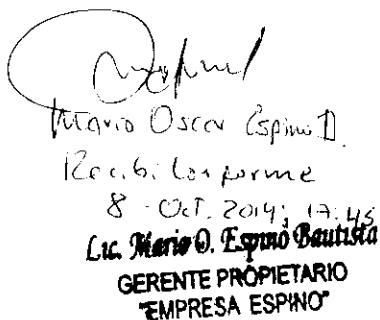 Mario Oscar Espino B.
Recibí Conforme
8 - Oct. 2014; 17:45
Lic. Mario O. Espino Bautista
GERENTE PROPIETARIO
"EMPRESA ESPINO"